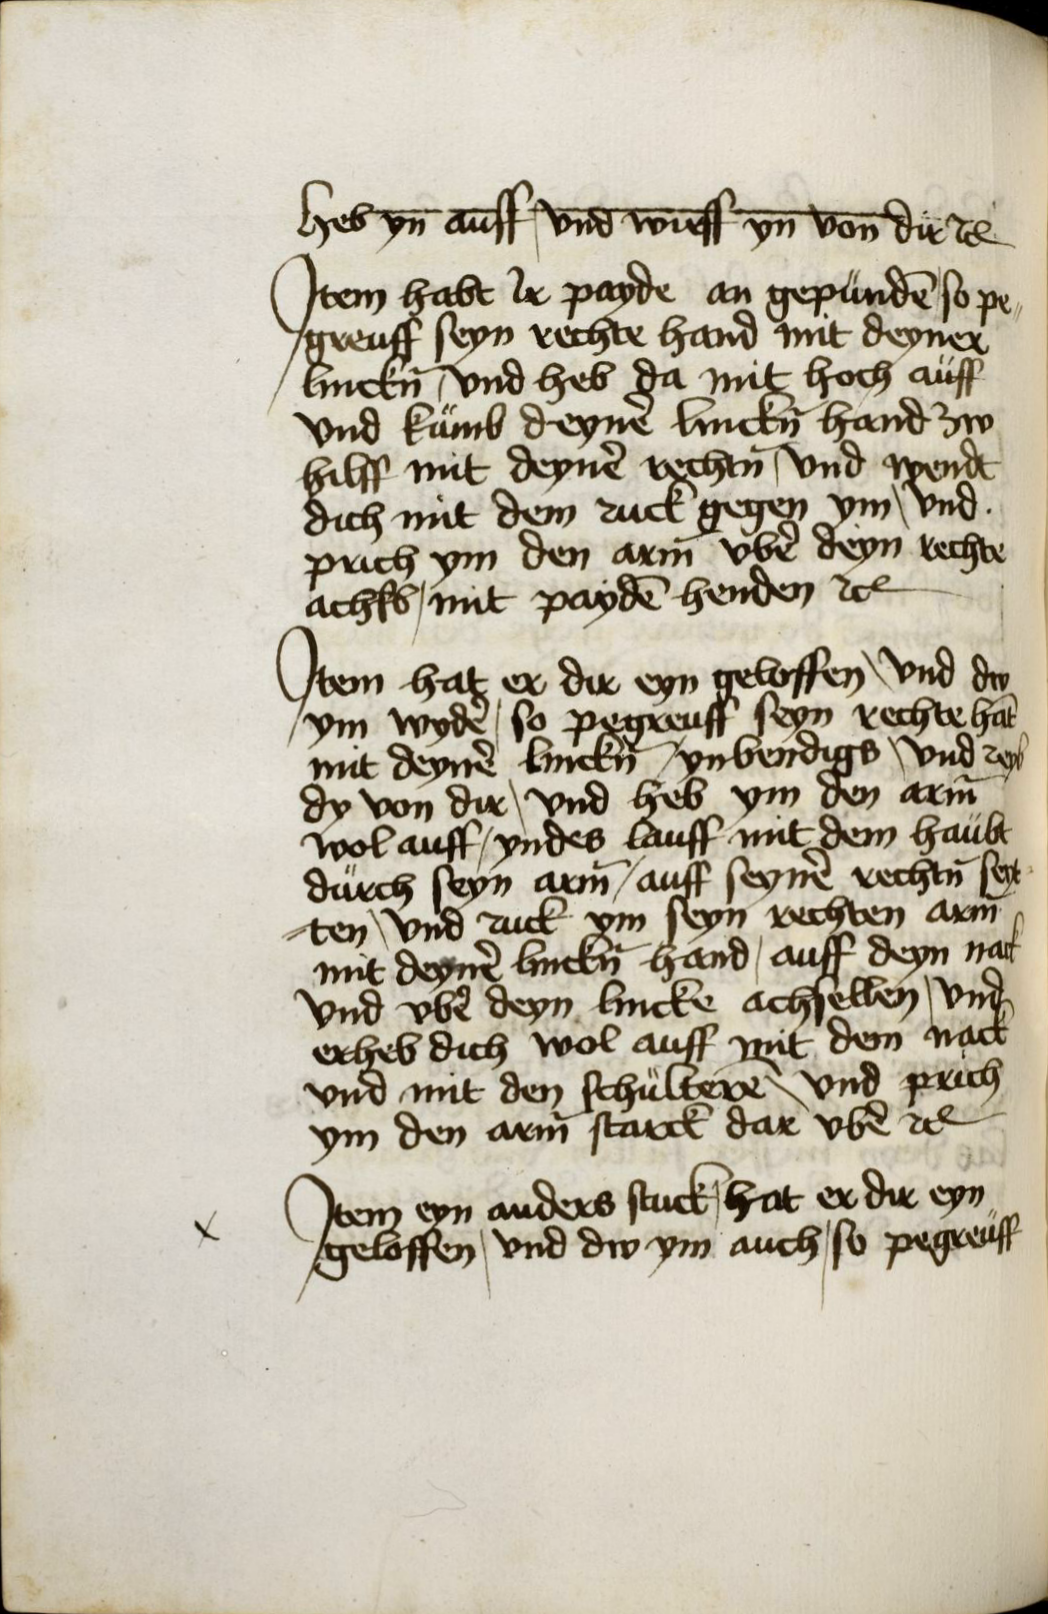 heb yn̄ auff / vnd wirff yn̄ von dir ꝛc
Item habt ir payde an gepündē / so pe„
greuff seyn rechte hand mit deyner
linckn̄ / vnd heb da mit hoch aüff
vnd kümb deynē linckn̄ hand zw
hilff mit deynē rechtn̄ / vnd wendt
dich mit dem ruck gegen ym / vnd .
prich ym den arm̄ vbē deyn rechte
achslb / mit paydē henden ꝛc
Item hat er dir eyn geloffen / vnd dw
ym wydē / so pegreuff seyn rechte hāt
mit deynē linckn̄ / ynbendigs / vnd reyb
dy von dir / vnd heb ym den arm̄
wol auff / yndes lauff mit dem haübt
dürch seyn arm̄ / auff seynē rechtn̄ seyt-
ten / vnd ruck ym seyn rechten arm̄
mit deynē linckn̄ hand / auff deyn nack
vnd vbē deyn lincke achsellen / vnd
erheb dich wol auff mit dem nack
vnd mit den schülterē / vnd prich
ym den arm̄ starck dar vbē ꝛc
Item eyn anders stuck / hat er dir eyn
x geloffen / vnd dw ym auch / so pegreüff